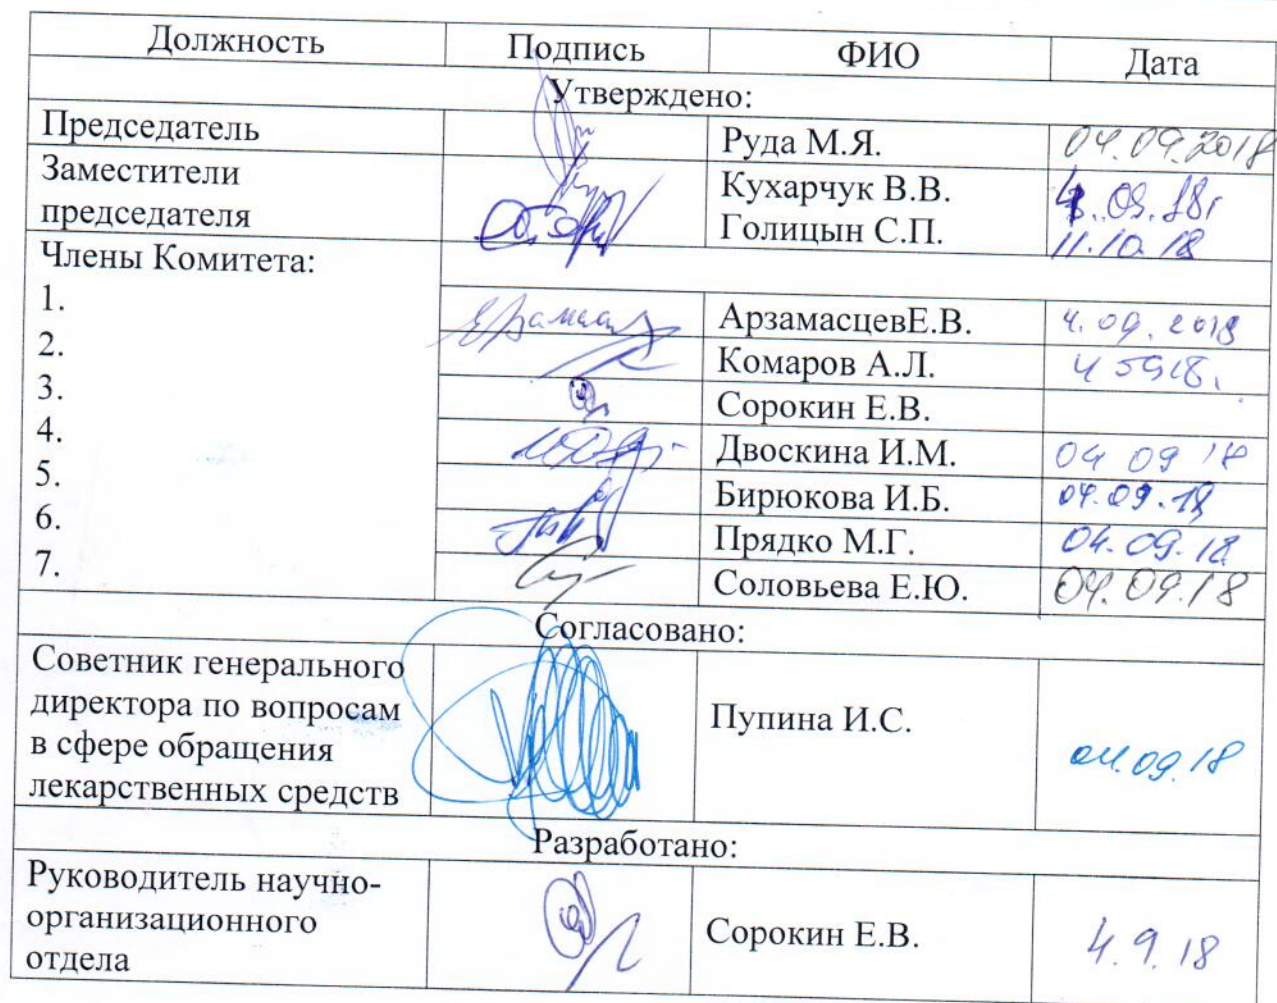 Должность Подпись ФИО Дата
Утверждено:
Председатель Руда М.Я. 04.09.2018
Заместители Кухарчук В.В. 4.09.18г
председателя Голицын С.П. 11.10.18
Члены Комитета:
1. АрзамасцевЕ.В. 4.09.2018
2. Комаров А.Л.
3. Сорокин Е.В.
4. Двоскина И.М. 04 09 18
5. Бирюкова И.Б. 04.09.18
6. Прядко М.Г. 04.09.18
7. Соловьева Е.Ю. 04.09.18
Согласовано:
Советник генерального
директора по вопросам Пупина И.С.
в сфере обращения 04.09.18
лекарственных средств
Разработано:
Руководитель научно-
организационного Сорокин Е.В. 4.9.18
отдела